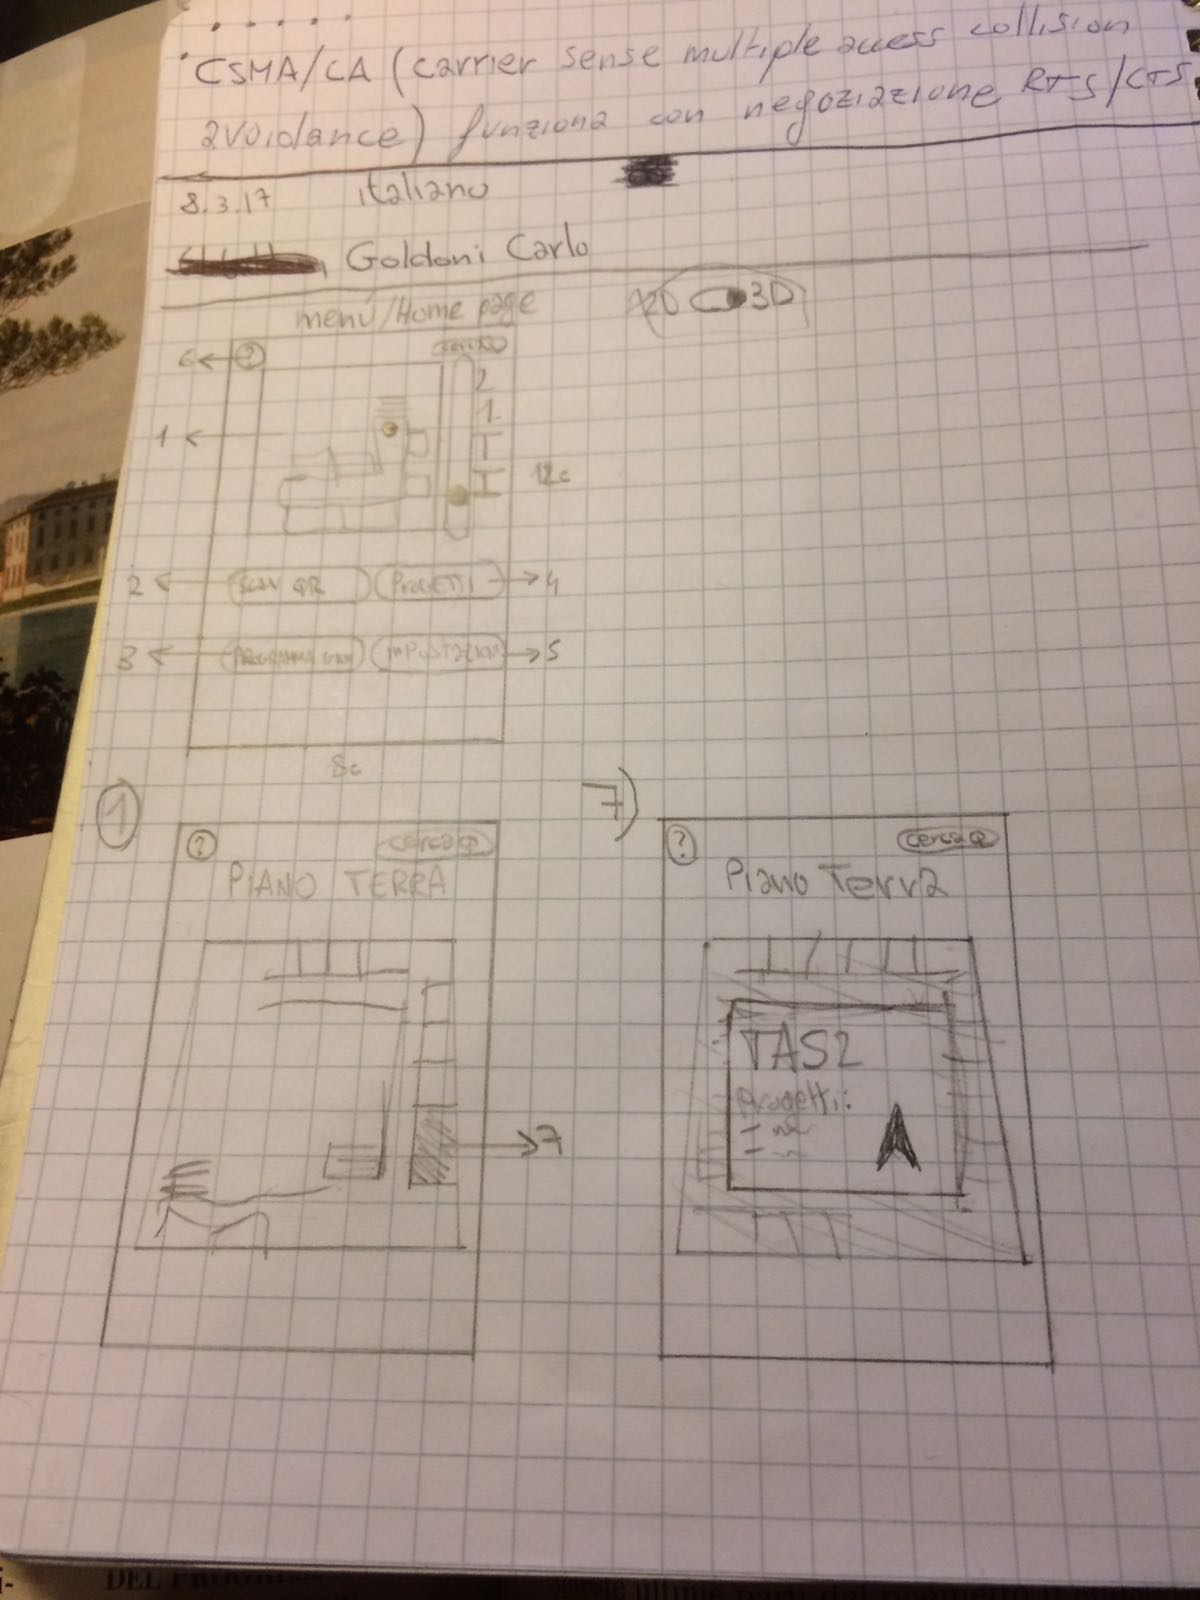 CSMA/CA (carrier sense multiple access collision
avoidance) funziona con negoziazione RTS/CTS
8.3.17 italiano
Goldoni Carlo
menú/Home page
2D 3D
6 ?
2
1
1
T
I
12c
2 SCAN QR PROGETTI 4
3 IMPOSTAZIONI 5
8c
1
? cerca
PIANO TERRA
7
7)
? cerca
Piano Terra
TAS2
Progetti:
DEL PROGR